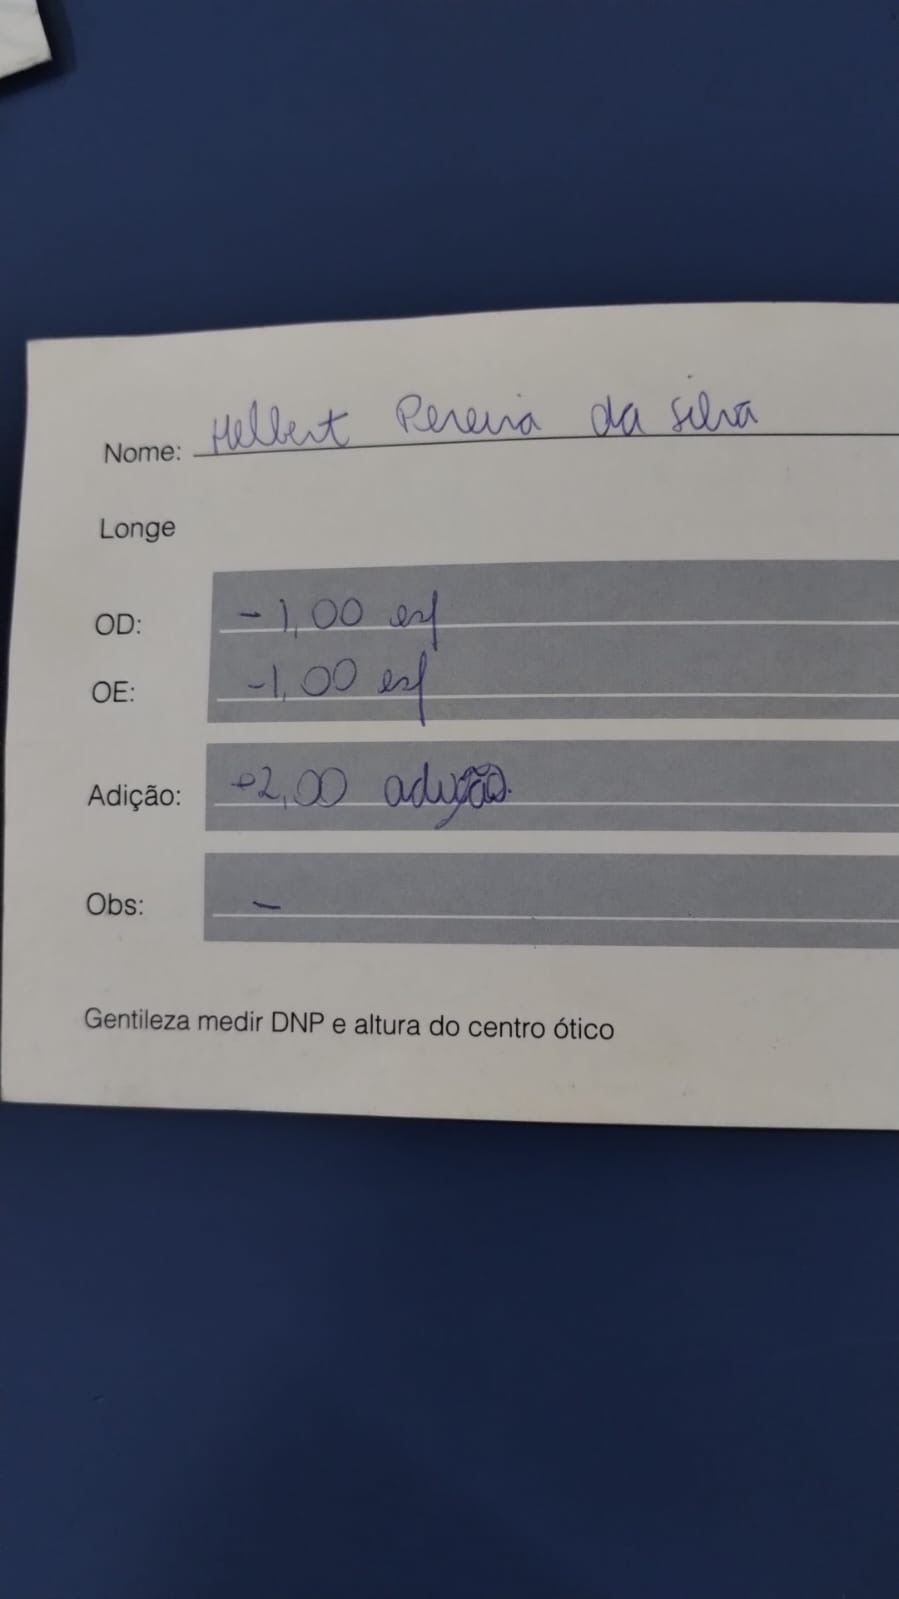 Nome: Helbert Pereira da Silva
Longe
OD: -1,00 esf
OE: -1,00 esf
Adição: +2,00 adição.
Obs: -
Gentileza medir DNP e altura do centro ótico